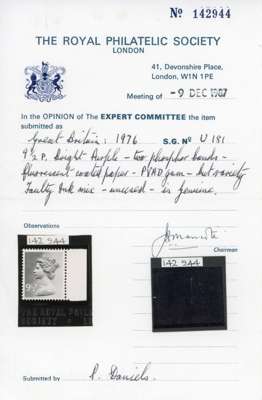 Nº 142944
THE ROYAL PHILATELIC SOCIETY
LONDON
41, Devonshire Place,
London, W1N 1PE
Meeting of -9 DEC 1987
In the OPINION of The EXPERT COMMITTEE the item
submitted as
Great Britain: 1976 S.G. Nº U 181
9½p. Bright Purple - two phosphor bands -
fluorescent coated paper - PVAD gum - variety
Faulty Ink mix - unused - is genuine.
Observations
Chairman
142 944
142 944
9½P
THE ROYAL PHILA
SOCIETY
Submitted by P. Daniels.